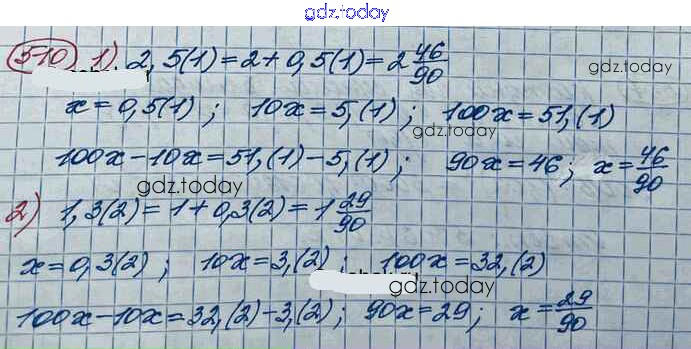 gdz.today
510) 1) 2,5(1)=2+0,5(1)=2 46/90
gdz.today
x=0,5(1); 10x=5,(1); 100x=51,(1)
gdz.today
100x-10x=51,(1)-5,(1); 90x=46; x=46/90
gdz.today
2) 1,3(2)=1+0,3(2)=1 29/90
x=0,3(2); 10x=3,(2); 100x=32,(2)
gdz.today
100x-10x=32,(2)-3,(2); 90x=29; x=29/90